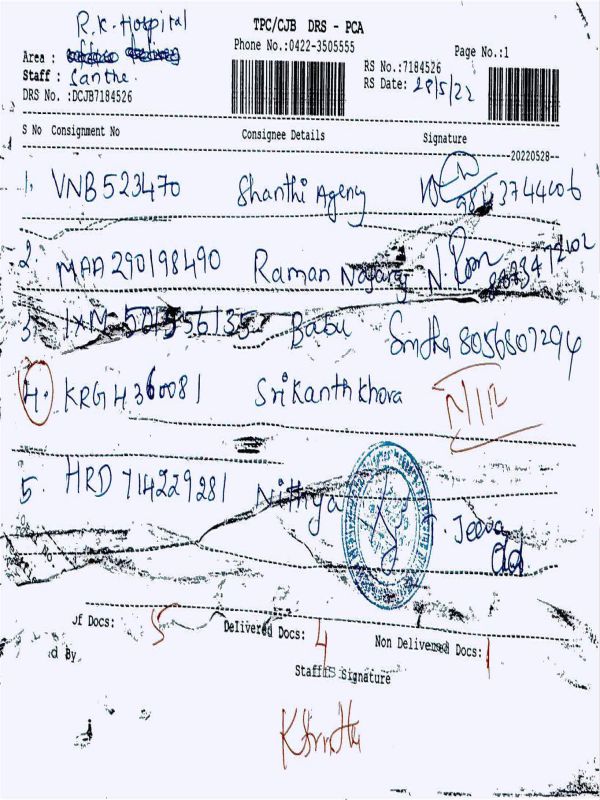 R.K. Hospital
TPC/CJB DRS - PCA
Phone No.:0422-3505555
Page No.:1
Area :
Staff : Santhe.
RS No.:7184526
RS Date: 28/5/22
DRS No. :DCJB7184526
S No Consignment No Consignee Details Signature
--20220528--
1. VNB 523470 Shanthi Agency
2. MAA 290198490 Raman N.
3. IXM 501556135 Babu Smitha 8056807294
4. KRG 4360081 Srikanth Khora
5. HRD 714229281 Nithya Jeeva
of Docs: 5 Delivered Docs: 4 Non Delivered Docs: 1
d By
Staff Signature